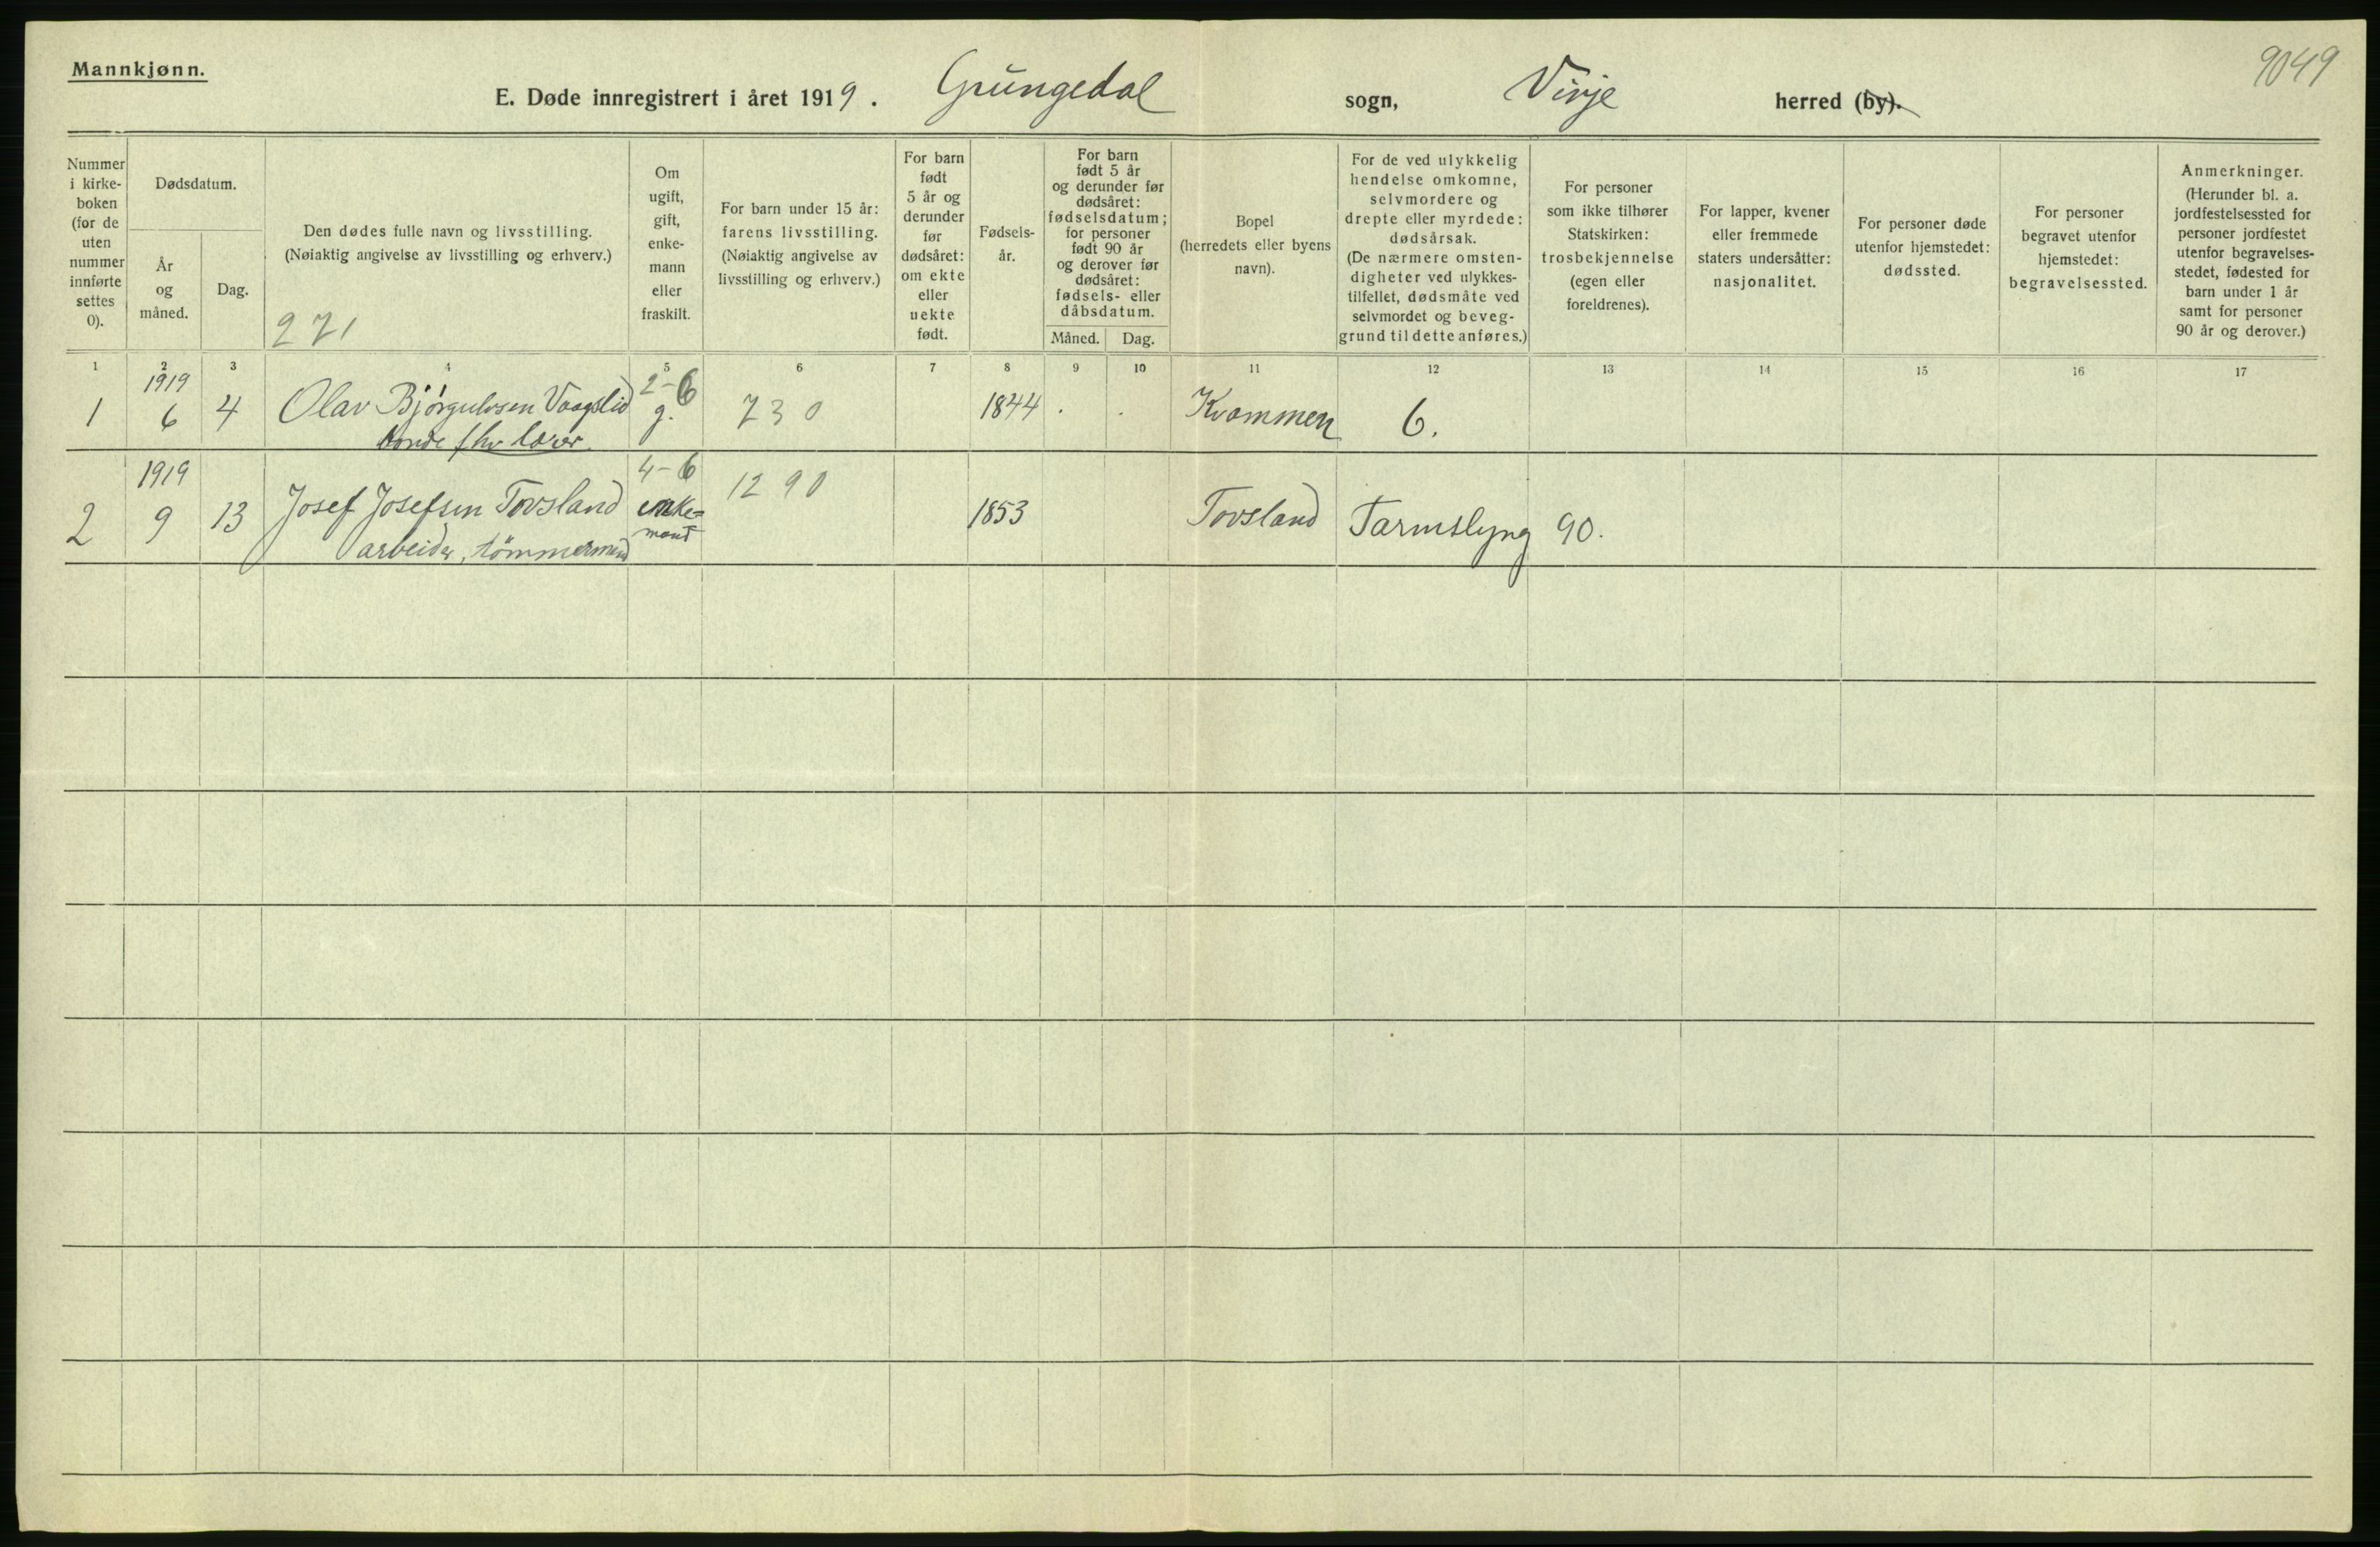 Mannkjønn.
9049
E. Døde innregistrert i året 1919. Grungedal sogn, Vinje herred (by).
Nummer i kirke- boken (for de uten nummer innførte settes 0).
Dødsdatum.
År og måned.
Dag.
Den dødes fulle navn og livsstilling.
(Nøiaktig angivelse av livsstilling og erhverv.)
271
Om ugift, gift, enke- mann eller fraskilt.
For barn under 15 år: farens livsstilling. (Nøiaktig angivelse av livsstilling og erhverv.)
For barn født 5 år og derunder før dødsåret: om ekte eller uekte født.
Fødsels- år.
For barn født 5 år og derunder før dødsåret: fødselsdatum; for personer født 90 år og derover før dødsåret: fødsels- eller dåbsdatum.
Måned. Dag.
Bopel (herredets eller byens navn).
For de ved ulykkelig hendelse omkomne, selvmordere og drepte eller myrdede: dødsårsak. (De nærmere omsten- digheter ved ulykkes- tilfellet, dødsmåte ved selvmordet og beveg- grund til dette anføres.)
For personer som ikke tilhører Statskirken: trosbekjennelse (egen eller foreldrenes).
For lapper, kvener eller fremmede staters undersåtter: nasjonalitet.
For personer døde utenfor hjemstedet: dødssted.
For personer begravet utenfor hjemstedet: begravelsessted.
Anmerkninger. (Herunder bl. a. jordfestelsessted for personer jordfestet utenfor begravelses- stedet, fødested for barn under 1 år samt for personer 90 år og derover.)
1 2 3 4 5 6 7 8 9 10 11 12 13 14 15 16 17
1919 2-6
1 6 4 Olav Bjørgulvsen Vaagslid g. 730 1844 . . Kvammen 6.
bonde fhv lærer
1919 4-6
2 9 13 Josef Josefsen Tovsland enke= 1290 1853 Tovsland Tarmslyng 90.
arbeider, tömmermand mand